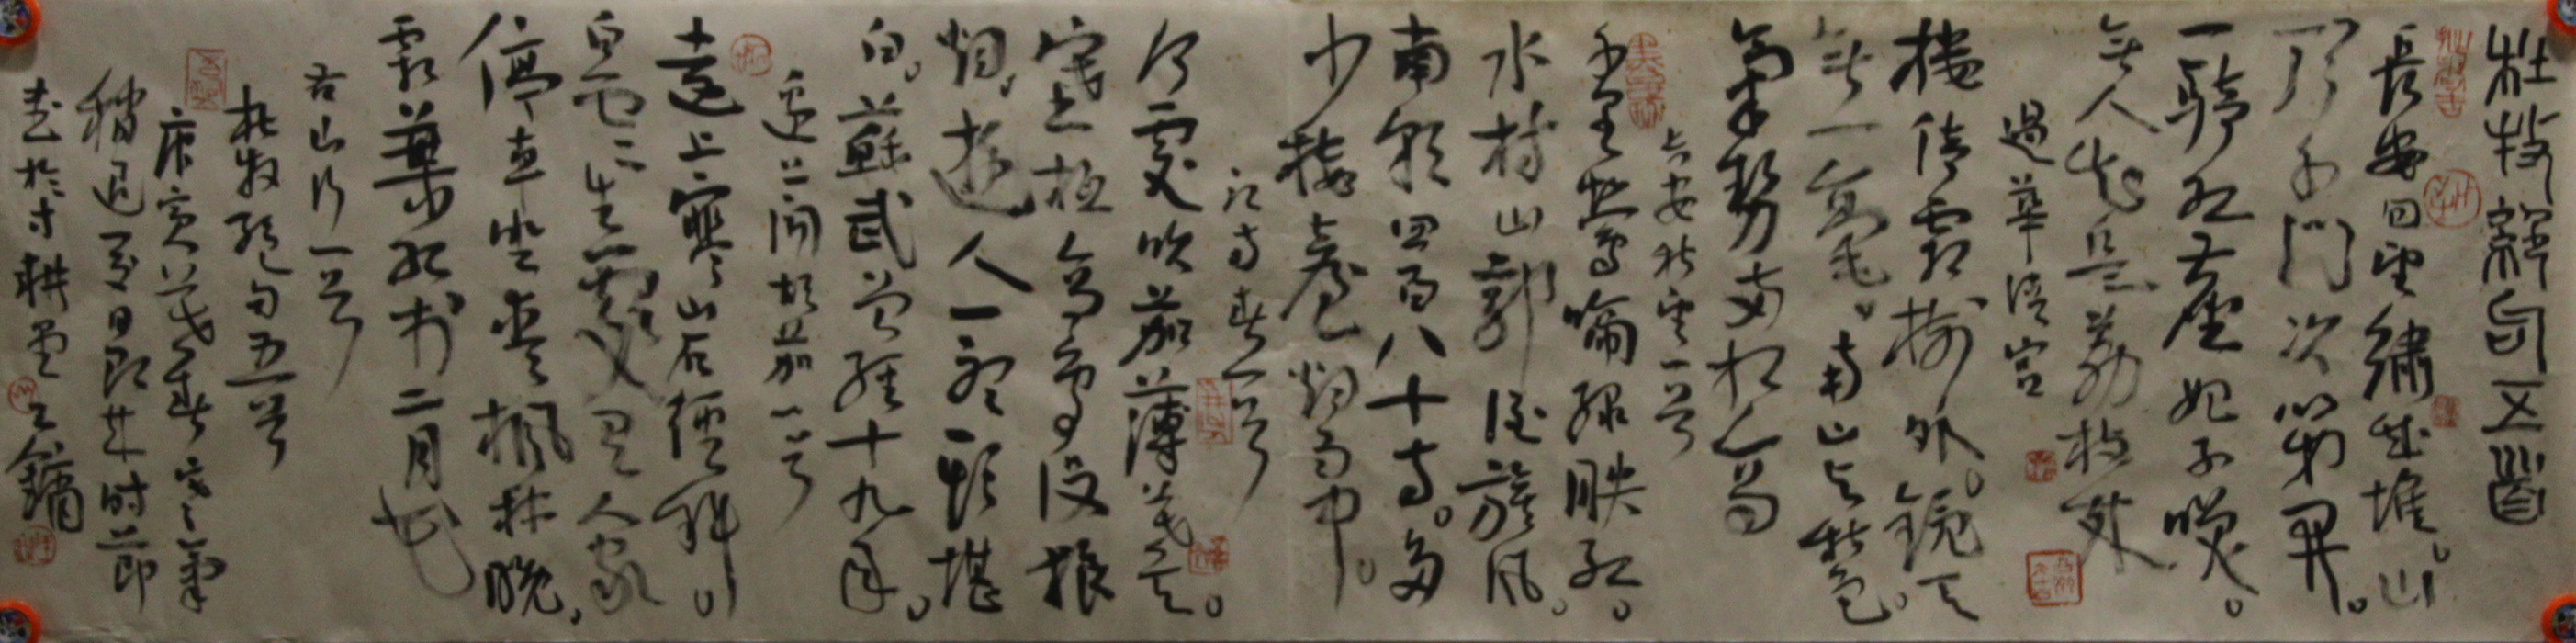 杜牧句五首
長安回望繡成堆。山
頂千門次第開。
一騎紅塵妃子笑。
無人知是荔枝來
過華清宮
樓倚霜樹外。鏡天
無一毫。南山與秋色。
氣勢兩相高
長安秋望一首
千里鶯啼綠映紅。
水村山郭酒旗風。
南朝四百八十寺。多
少樓臺煙雨中。
江南春一首
何處吹笳薄暮天。
塞上垣高鳥沒狼
煙。遊人一聽頭堪
白。蘇武曾經十九年。
邊上聞胡笳一首
遠上寒山石徑斜。
白雲生處有人家
停車坐愛楓林晚,
霜葉紅於二月花
右山行一首
杜牧絕句五首
庚寅暮春寒氣
稍退夏日即來時節
書於寸耕堂 王鏞